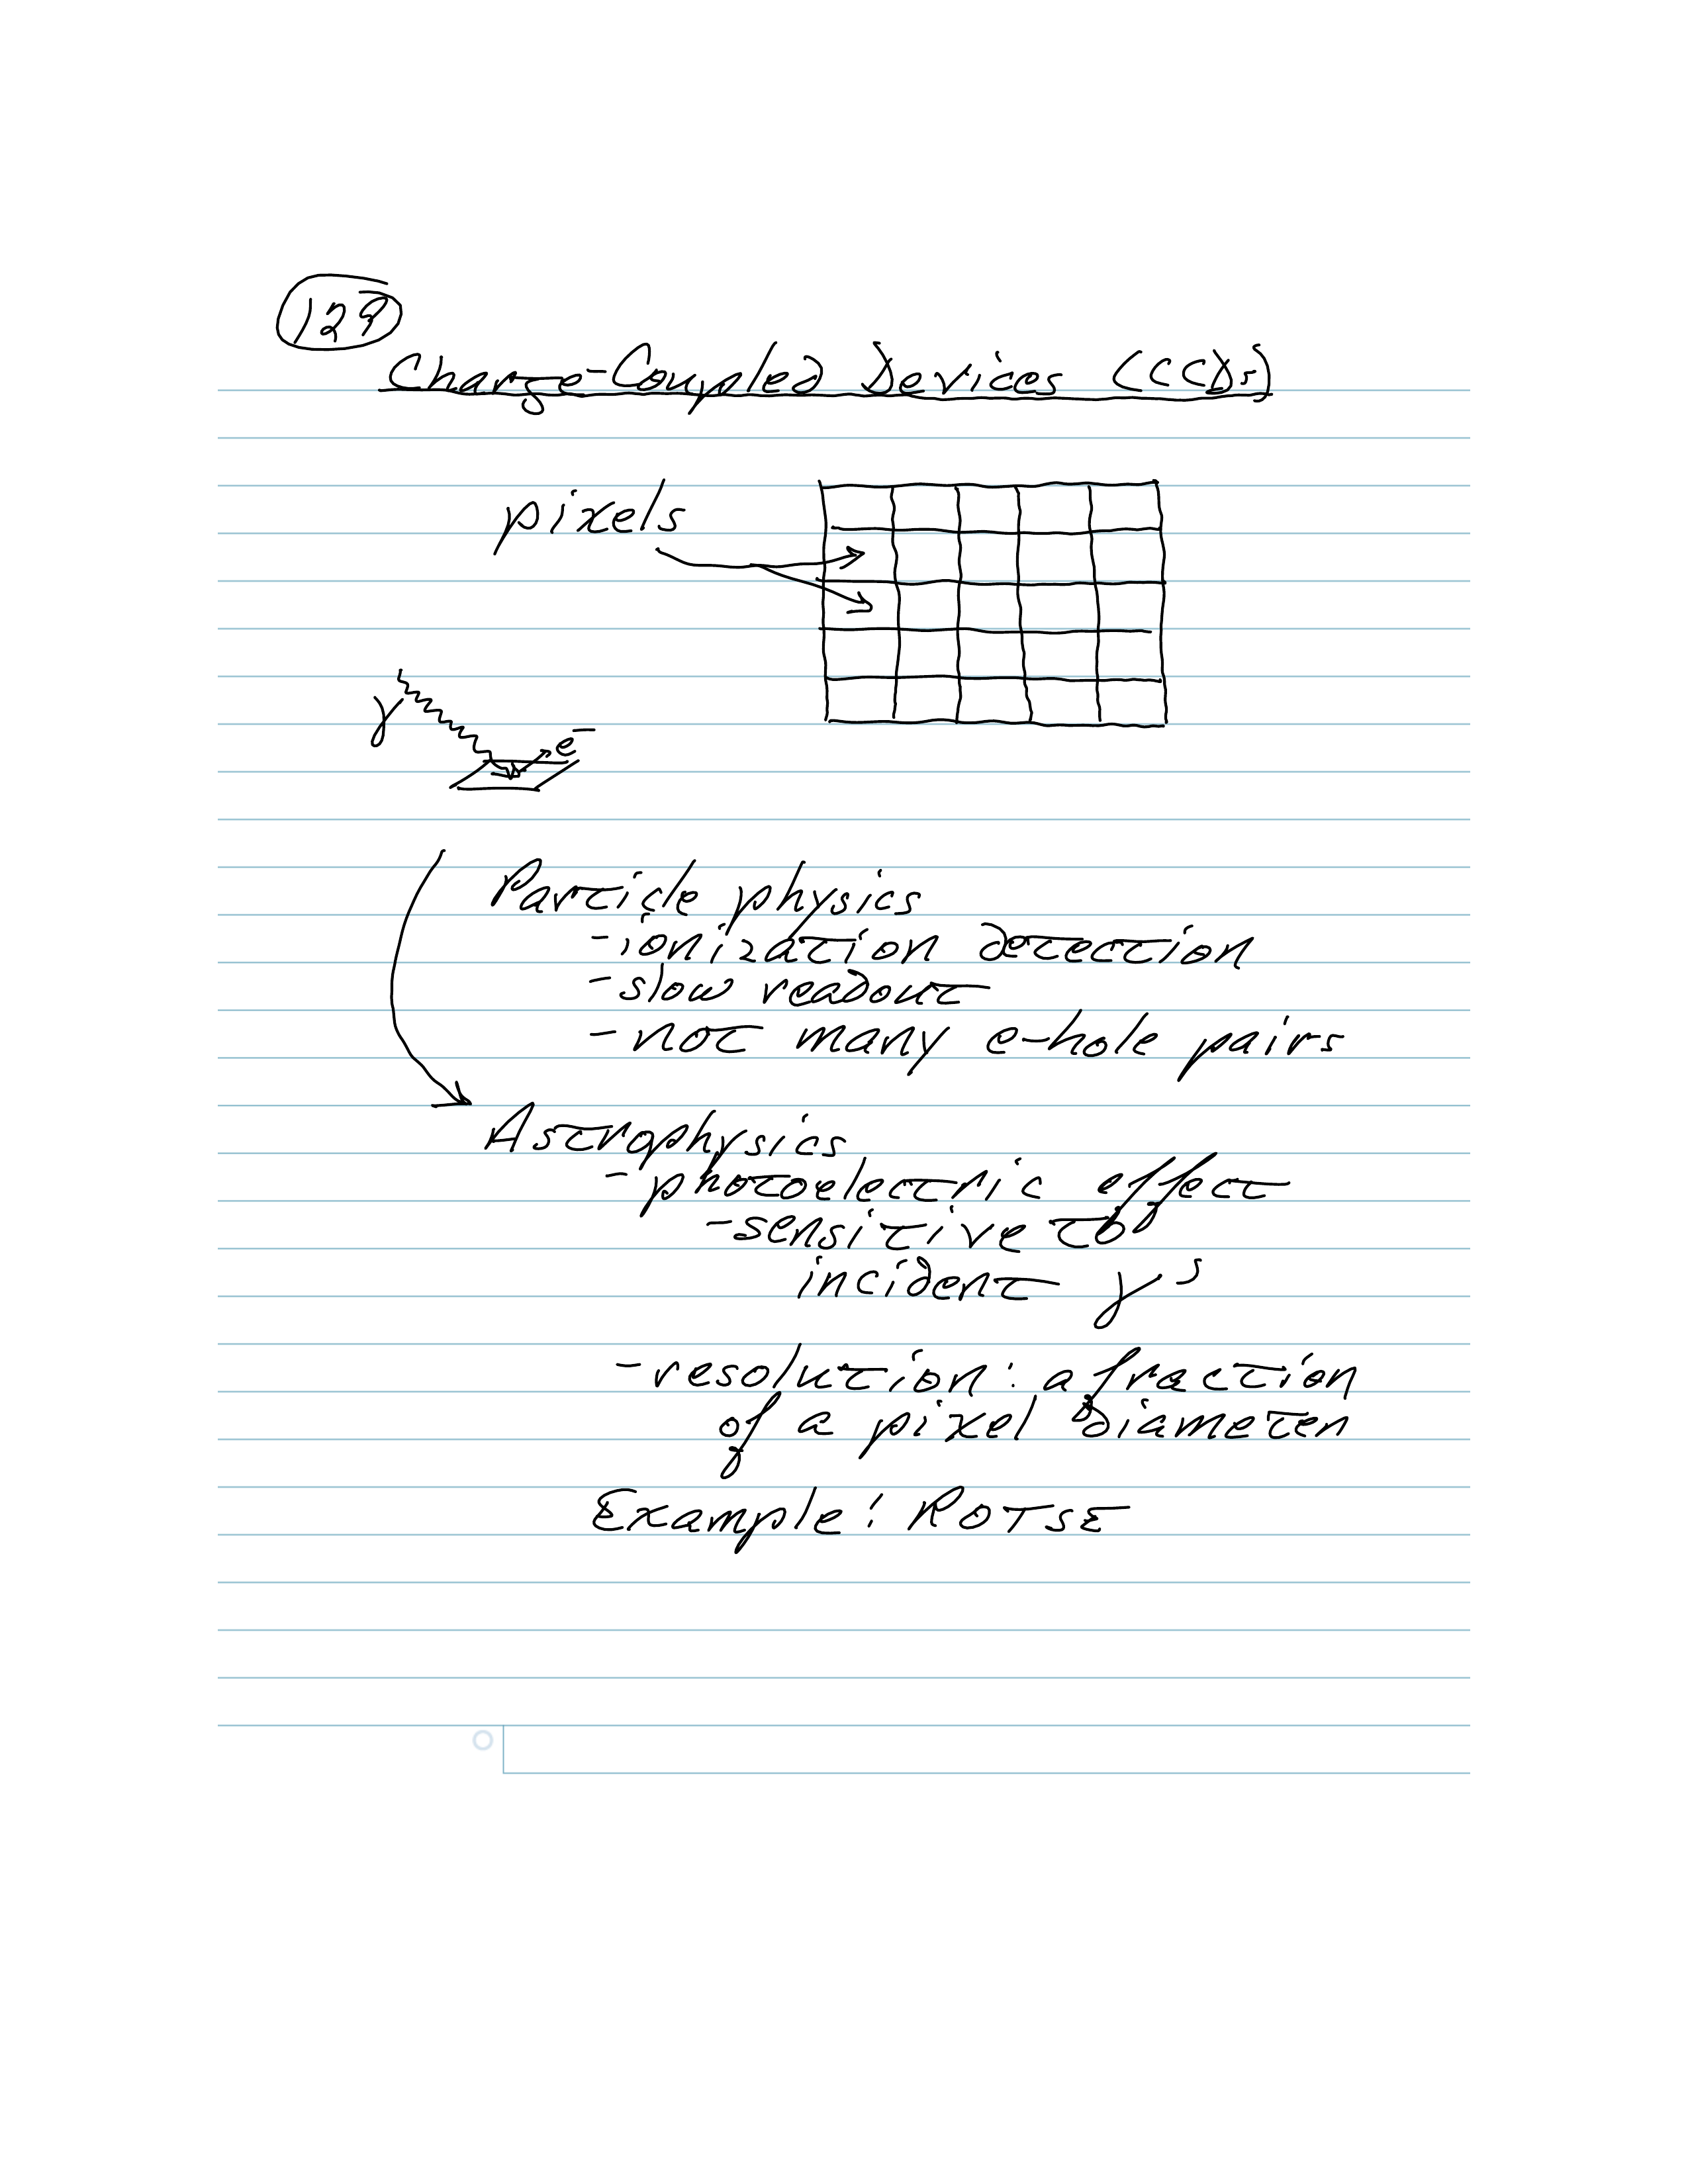 129
Charge-Coupled Devices (CCDs)
pixels
γ
e⁻
Particle physics
-ionization detection
-slow readout
-not many e-hole pairs
Astrophysics
-photoelectric effect
-sensitive to
incident γ's
-resolution: a fraction
of a pixel diameter
Example: ROTSE